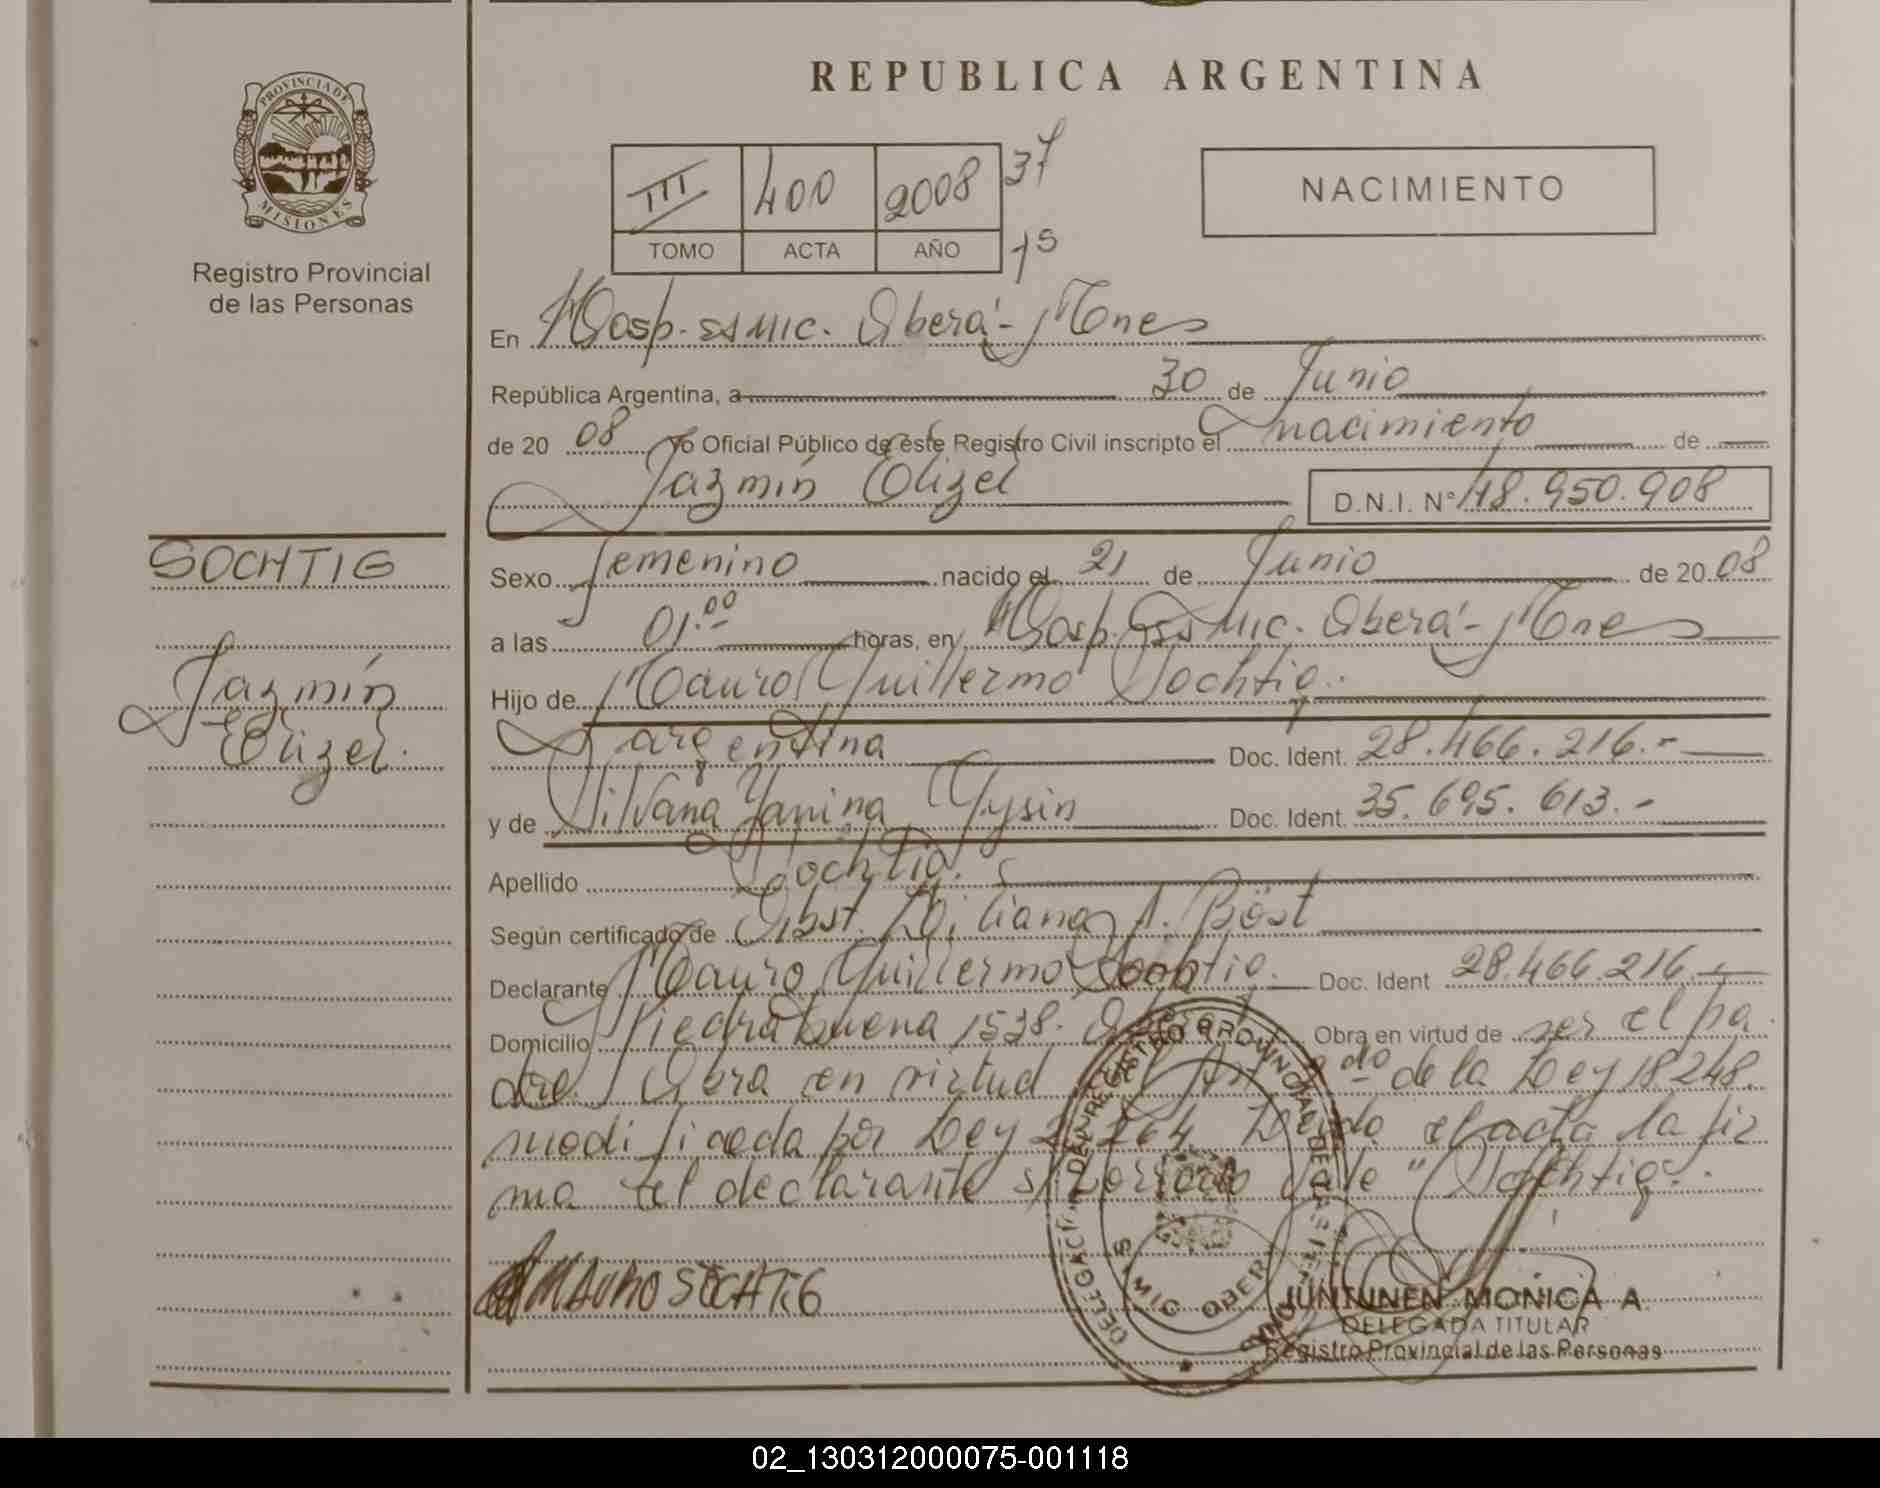 REPUBLICA ARGENTINA
PROVINCIA DE
MISIONES
Registro Provincial
de las Personas
III 400 2008 37
TOMO ACTA AÑO 75
NACIMIENTO
En Hosp. SAMIC. Oberá - Mnes
República Argentina, a 30 de Junio
de 20 08 Yo Oficial Público de éste Registro Civil inscripto el nacimiento de
Jazmín Elizel D.N.I. N° 48.950.908
SOCHTIG
Jazmín
Elizel.
Sexo femenino nacido el 21 de Junio de 20 08
a las 01.00 horas, en Hosp. SAMIC. Oberá - Mnes
Hijo de Mauro Guillermo Sochtig.
argentina Doc. Ident. 28.466.216.-
y de Silvana Yanina Gysin Doc. Ident. 35.695.613.-
Apellido Sochtig.
Según certificado de Obst. Liliana A. Böst
Declarante Mauro Guillermo Sochtig. Doc. Ident 28.466.216.-
Domicilio Piedrabuena 1538. Oberá Obra en virtud de ser el pa
dre. Obra en virtud del Art 2do de la Ley 18248.
modificada por Ley 23.264. Leída el acta la fir
ma del declarante s/borrado vale "Sochtig".
MAURO SOCHTIG
DELEGACION DEL REGISTRO PROVINCIAL DE LAS PERSONAS
SAMIC OBERA
JUNTUNEN MONICA A.
DELEGADA TITULAR
Registro Provincial de las Personas
02_130312000075-001118